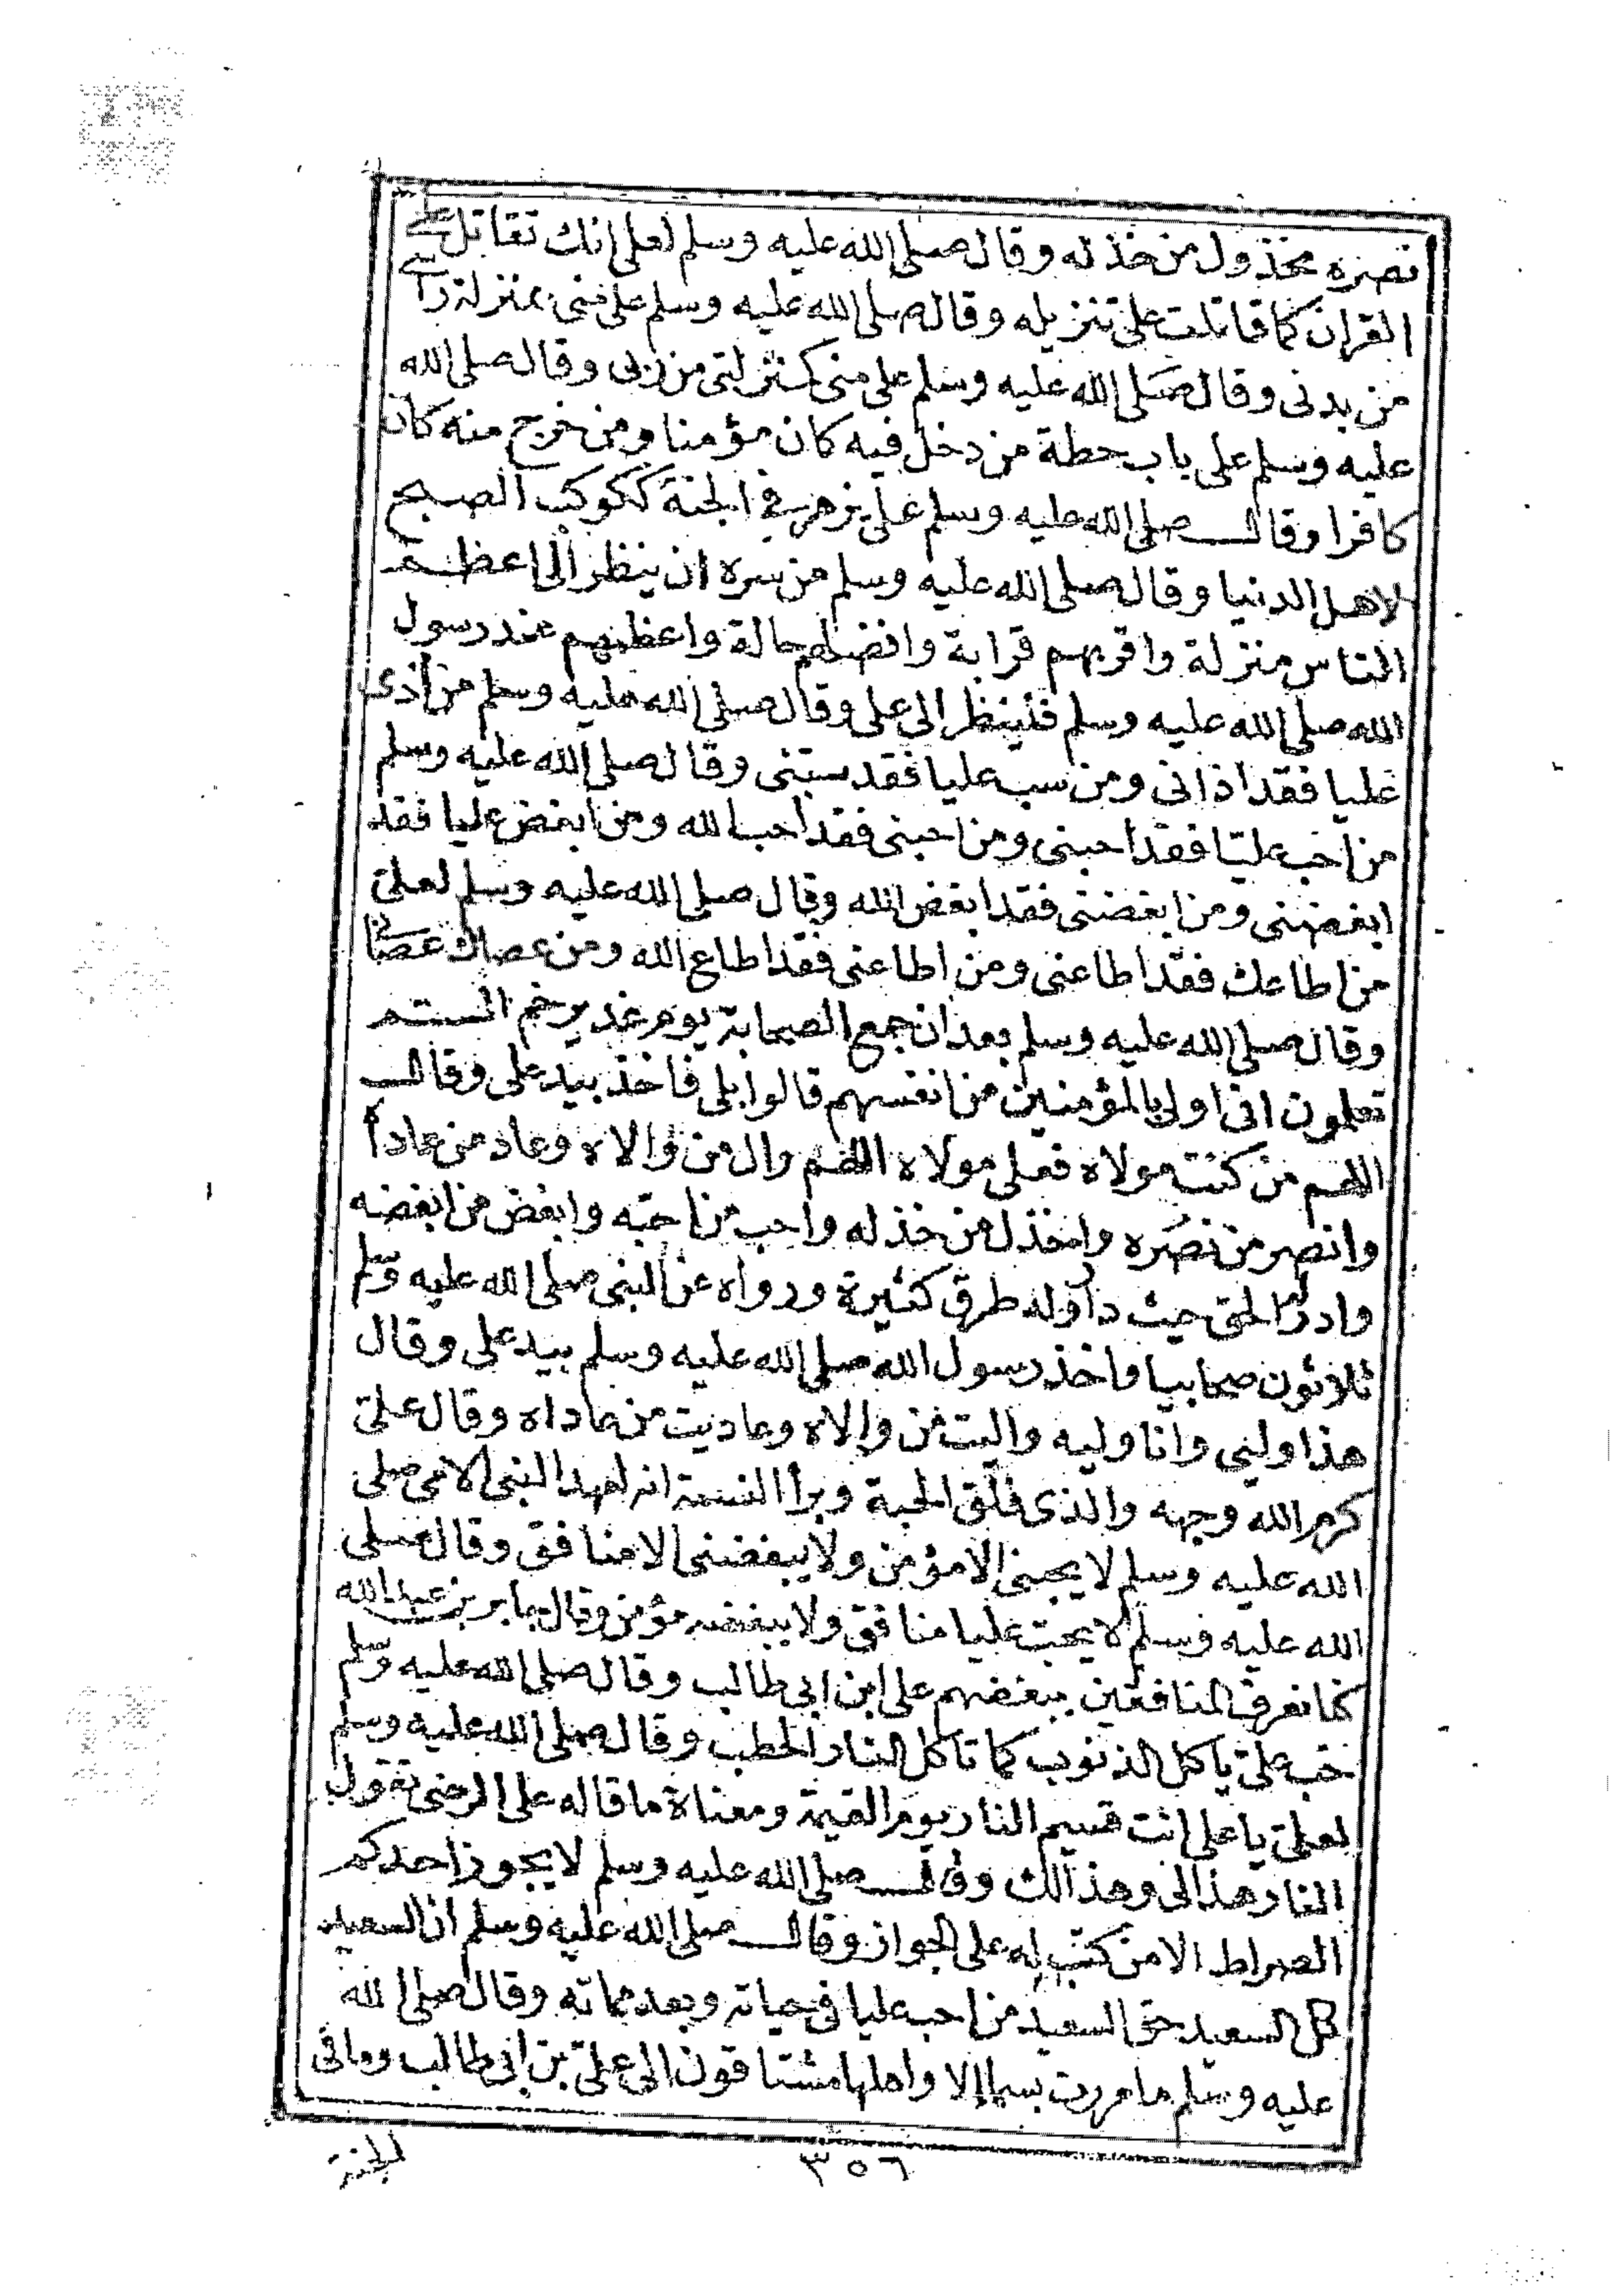 نصره مخذول من خذله وقال صلى الله عليه وسلم لعلى انك تقاتل على
القران كما قاتلت على تنزيله وقال صلى الله عليه وسلم على منى بمنزلة راسى
من بدنى وقال صلى الله عليه وسلم على منى كمنزلتى من ربى وقال صلى الله
عليه وسلم على باب حطة من دخل فيه كان مؤمنا ومن خرج منه كان
كافرا وقال صلى الله عليه وسلم على يزهر فى الجنة ككوكب الصبح
لاهل الدنيا وقال صلى الله عليه وسلم من سره ان ينظر الى اعظم
الناس منزلة واقربهم قرابة وافضلهم حالة واعظمهم عند رسول
الله صلى الله عليه وسلم فلينظر الى على وقال صلى الله عليه وسلم من أذى
عليا فقد اذانى ومن سب عليا فقد سبنى وقال صلى الله عليه وسلم
من احب عليّا فقد احبنى ومن احبنى فقد احب الله ومن ابغض عليا فقد
ابغضنى ومن ابغضنى فقد ابغض الله وقال صلى الله عليه وسلم لعلىّ
من اطاعك فقد اطاعنى ومن اطاعنى فقد اطاع الله ومن عصاك عصانى
وقال صلى الله عليه وسلم بعد ان جمع الصحابة يوم غدير خم الستم
تعلمون انى اولى بالمؤمنين من انفسهم قالوا بلى فاخذ بيد على وقال
اللهم من كنت مولاه فعلى مولاه اللهم وال من والاه وعاد من عاداه
وانصر من نصره واخذل من خذله واحب من احبّه وابغض من ابغضه
وادر الحق حيث دار وله طرق كثيرة ورواه عن النبى صلى الله عليه وسلم
ثلاثون صحابيا واخذ رسول الله صلى الله عليه وسلم بيد على وقال
هذا وليى وانا وليه واليت من والاه وعاديت من عاداه وقال علىّ
كرم الله وجهه والذى فلق الحبة وبرأ النسمة انه لعهد النبى الامى صلى
الله عليه وسلم لا يحبنى الا مؤمن ولا يبغضنى الا منافق وقال صلى
الله عليه وسلم لا يحبّ عليا منافق ولا يبغضه مؤمن وقال جابر بن عبد الله
كنا نعرف المنافقين ببغضهم على ابن ابى طالب وقال صلى الله عليه وسلم
حب علىّ ياكل الذنوب كما تاكل النار الحطب وقال صلى الله عليه وسلم
لعلىّ يا على انت قسيم النار يوم القيمة ومعناه ما قاله على الرضى يقول
النار هذا لى وهذا لك وقال صلى الله عليه وسلم لا يجوز احدكم
الصراط الا من كتب له على الجواز وقال صلى الله عليه وسلم ان السعيد
كل السعيد حق السعيد من احب عليا فى حياته وبعد مماته وقال صلى الله
عليه وسلم ما مررت بسماء الا واهلها مشتاقون الى علىّ بن ابى طالب وما فى
٣٥٦
الجنة